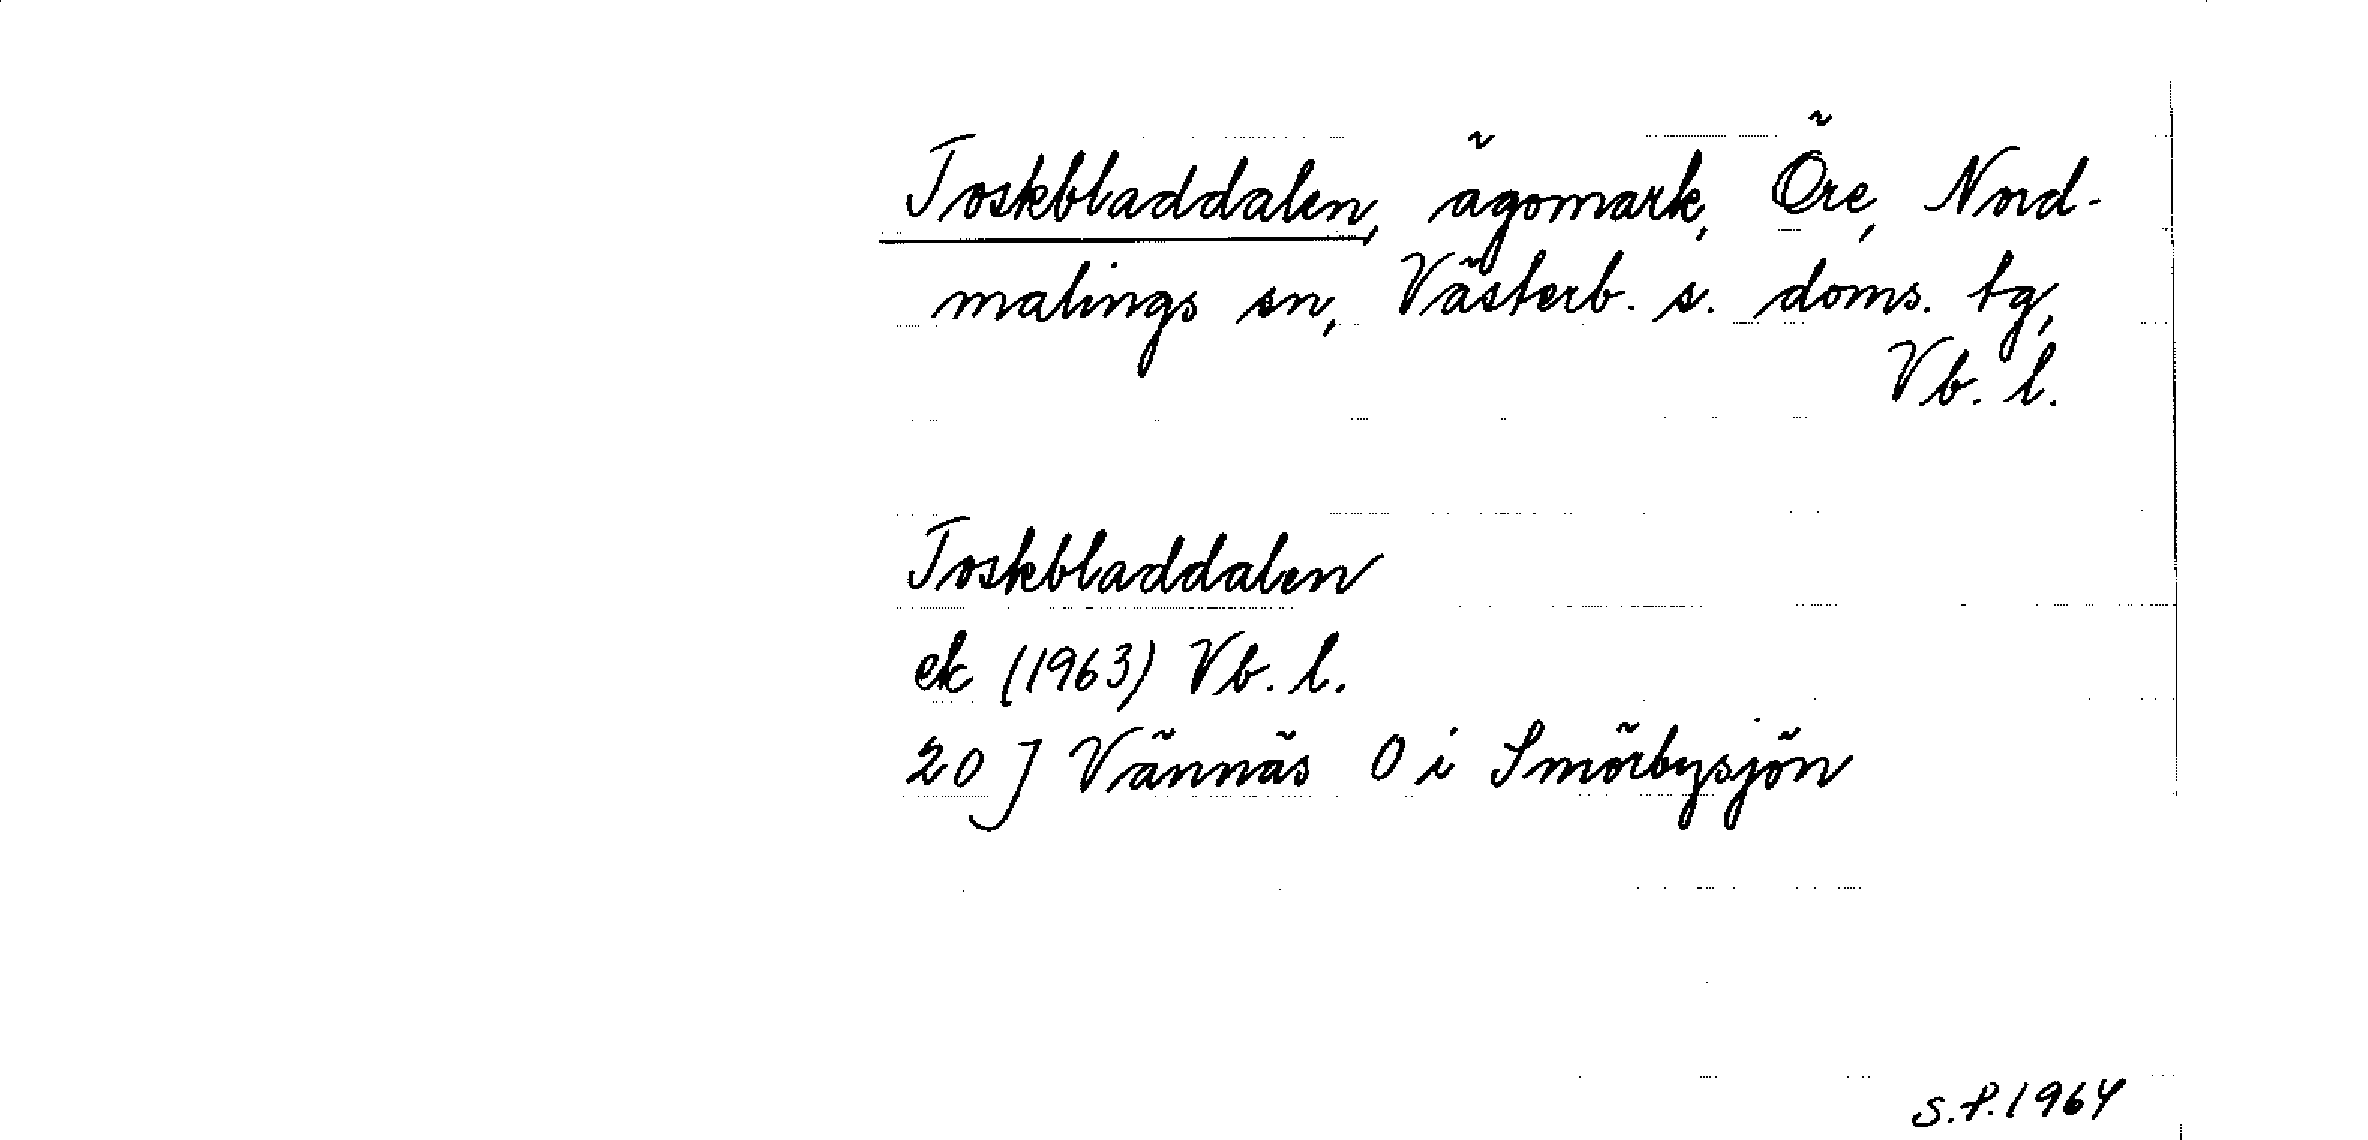 Toskbladdalen, ägomark, Öre, Nord-
malings sn, Västerb. s. doms. tg,
Vb. l.
Toskbladdalen
ek (1963) Vb. l.
20 J Vännäs O i Smörbysjön
S.P. 1964